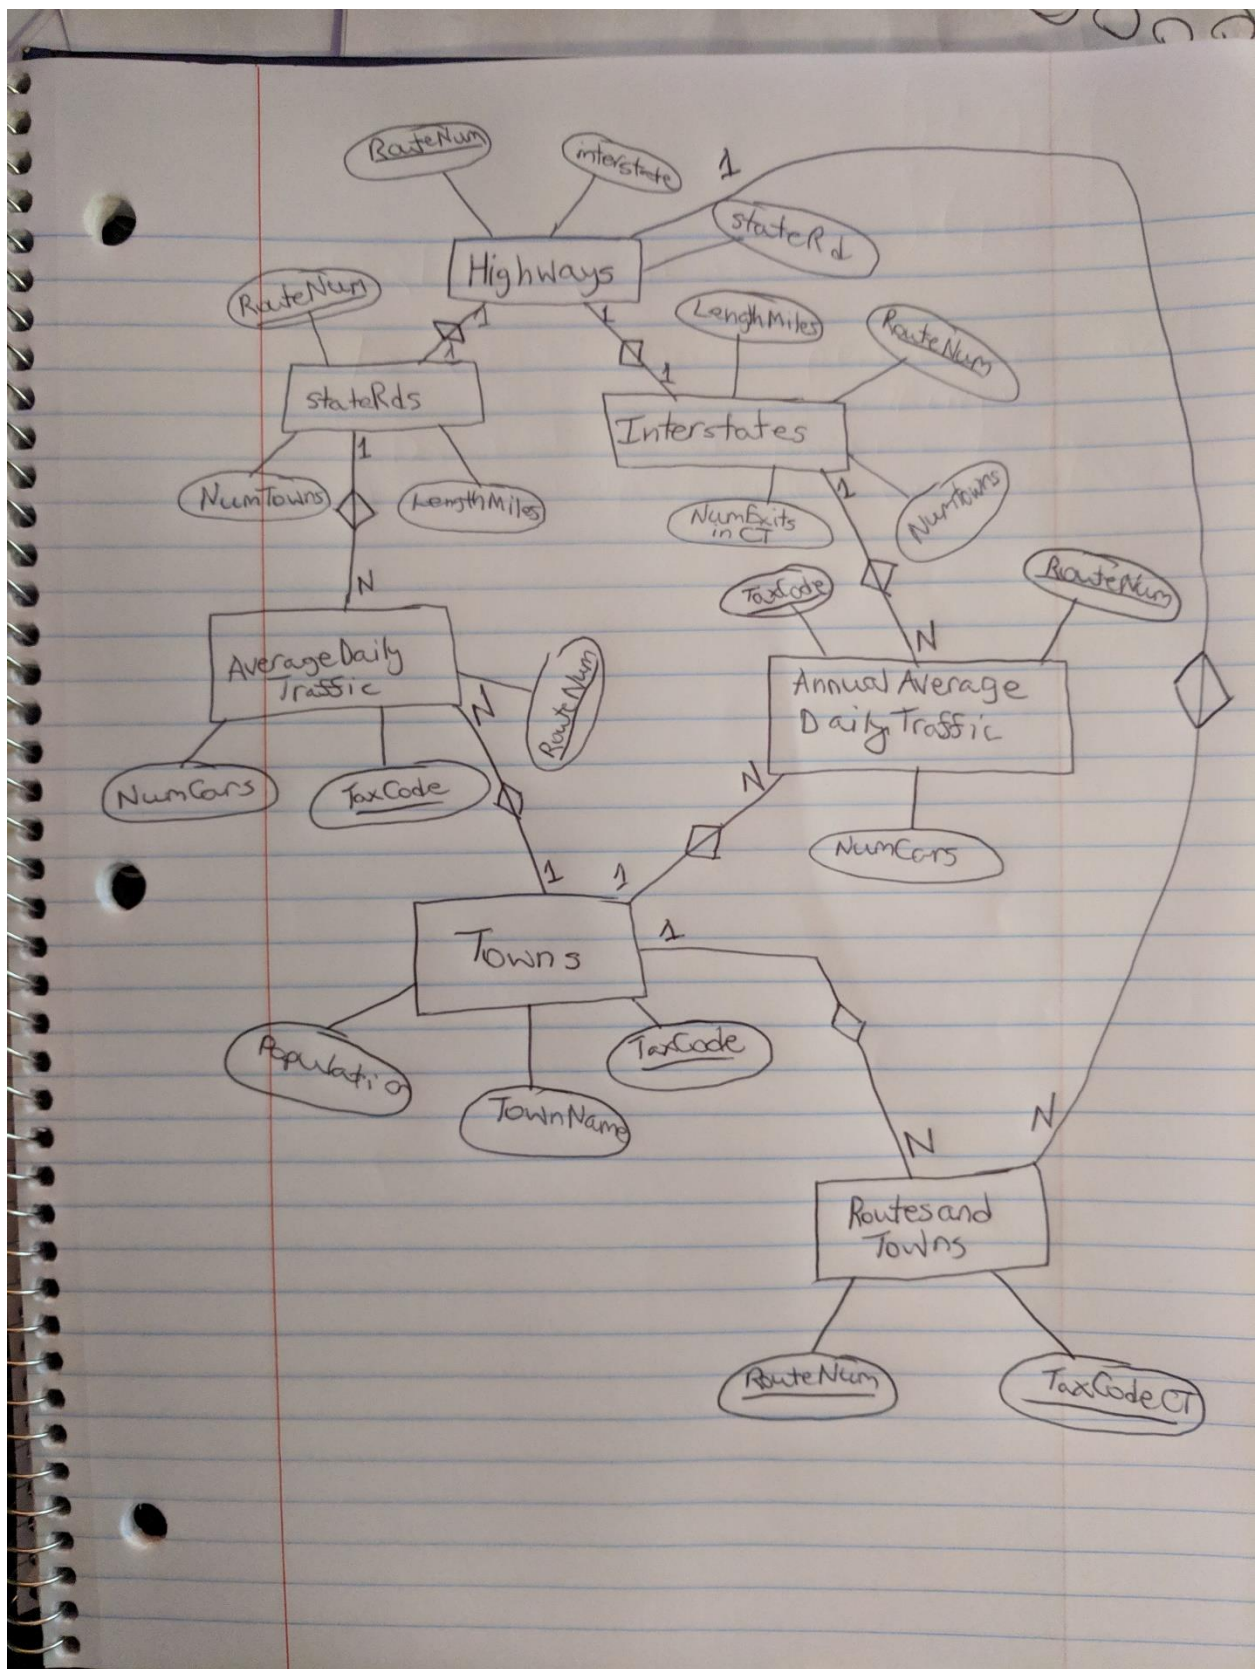 RouteNum
interstate
1
stateRd
Highways
RouteNum
1
1
LengthMiles
RouteNum
1
1
stateRds
Interstates
1
NumTowns
LengthMiles
1
NumExits
in CT
NumTowns
N
TaxCode
RouteNum
N
AverageDaily
Traffic
RouteNum
N
Annual Average
Daily Traffic
NumCars
TaxCode
N
NumCars
1
1
Towns
1
Populatio
TaxCode
TownName
N
N
Routesand
Towns
RouteNum
TaxCodeCT